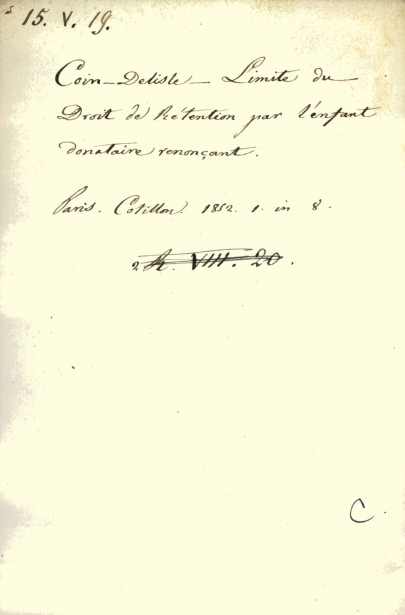 15. V. 19.
Coin_Delisle_ Limite du
Droit de Rétention par l'enfant
donataire renonçant.
Paris. Cotillon. 1852. 1. in 8.
2 R. VIII. 20.
C.